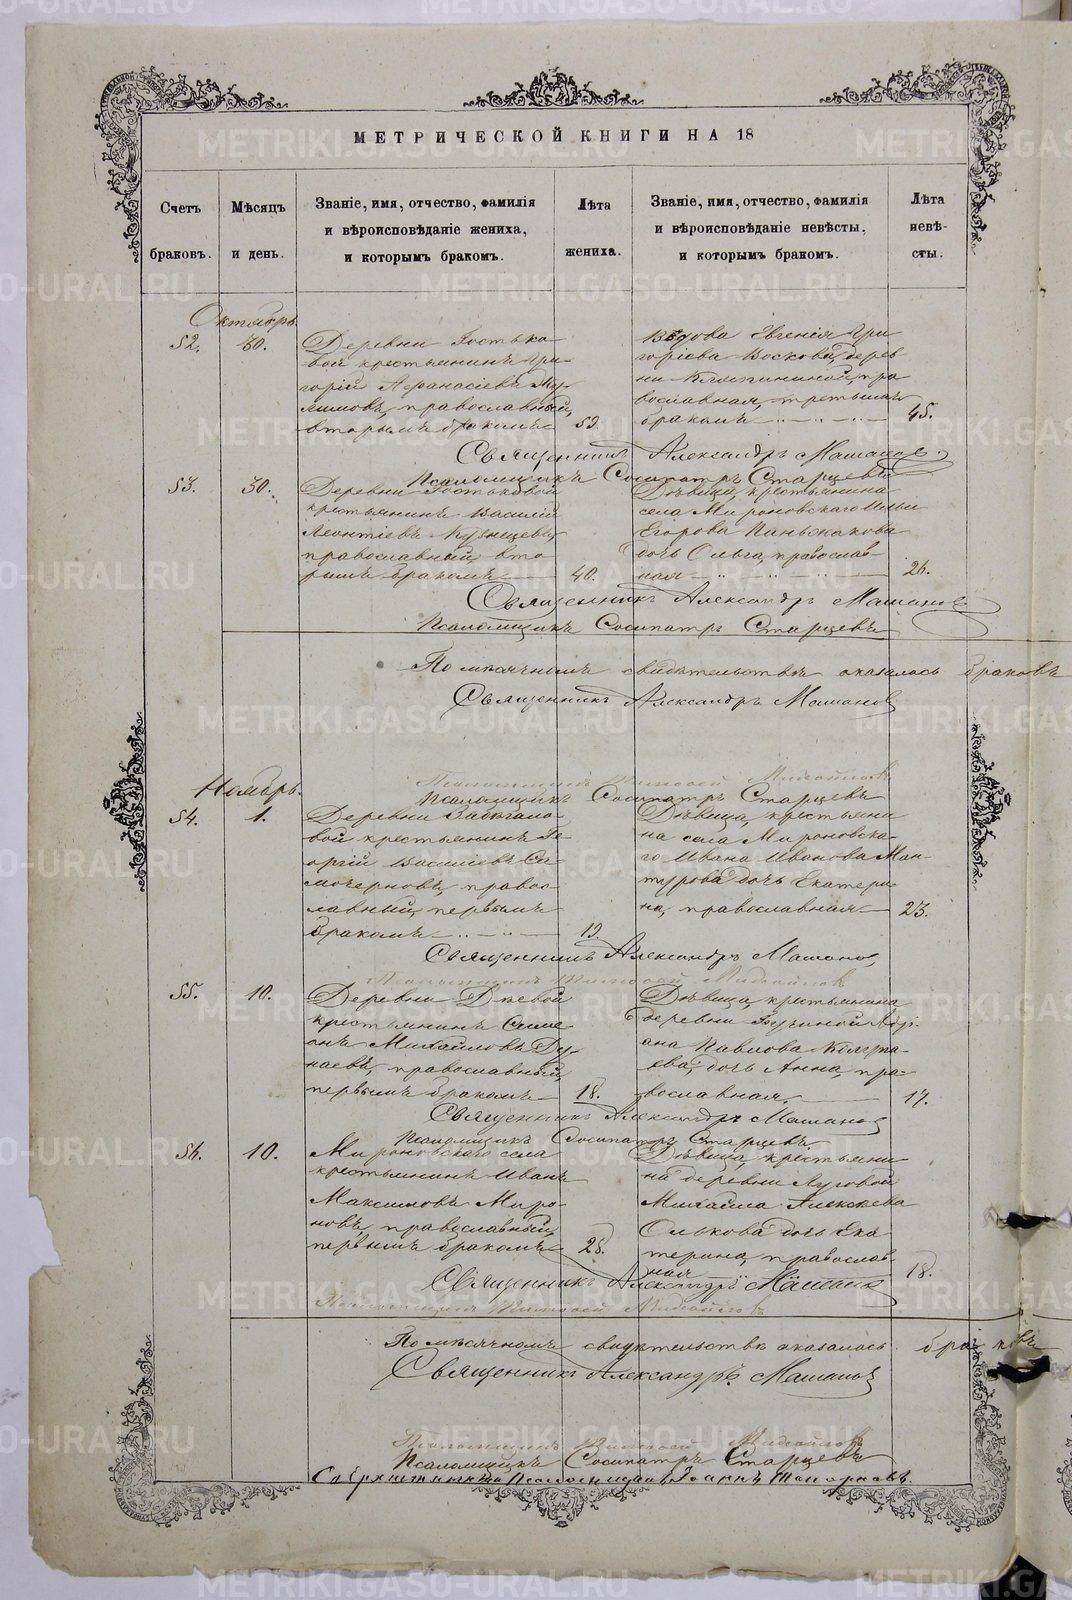 МЕТРИЧЕСКОЙ КНИГИ НА 18
Счетъ браковъ.
Мѣсяцъ и день.
Званіе, имя, отчество, фамилія
и вѣроисповѣданіе жениха,
и которымъ бракомъ.
Лѣта жениха.
Званіе, имя, отчество, фамилія
и вѣроисповѣданіе невѣсты,
и которымъ бракомъ.
Лѣта невѣ-
сты.
Октябрь.
52.
30.
Деревни Гостько-
вой крестьянинъ Гри-
горій Аѳанасіевъ
православный,
вторымъ бракомъ
52.
Вдова Евгенія Гри-
горіева Воскова, дерев-
ни пра-
вославная, третьимъ
бракомъ
45.
Священникъ Александръ Машановъ.
Псаломщикъ Сосипатръ Старцевъ
53.
30.
Деревни Гостьковой
крестьянинъ Василій
Леонтіевъ Кузнецовъ
православный, вто-
рымъ бракомъ
40.
Дѣвица, крестьянина
села Мироновскаго Ильи
Егорова Паньшакова
дочь Ольга, православ-
ная
26.
Священникъ Александръ Машановъ
Псаломщикъ Сосипатръ Старцевъ
По мѣсячномъ свидѣтельствѣ оказалось браковъ
Священникъ Александръ Машановъ
Псаломщикъ Сосипатръ Старцевъ
Ноябрь.
54.
1.
Деревни
вой крестьянинъ Ге-
оргій Василіевъ Са-
мочерновъ, правос-
лавный, первымъ
бракомъ
19
Дѣвица, крестьяни-
на села Мироновска-
го Ивана Иванова Ман-
турова дочь Екатери-
на, православная
23.
Священникъ Александръ Машановъ
55.
10.
Деревни Дѣевой
крестьянинъ Симе-
онъ Михайловъ Ду-
наевъ, православный,
первымъ бракомъ
18.
Дѣвица, крестьянина
деревни Бучиной Адрі-
ана Павлова
ева, дочь Анна, пра-
вославная.
17.
Священникъ Александръ Машановъ
Псаломщикъ Сосипатръ Старцевъ
56.
10.
Мироновскаго села
крестьянинъ Иванъ
Максимовъ Миро-
новъ, православный,
первымъ бракомъ
28.
Дѣвица, крестьяни-
на деревни Луговой
Михаила Алексѣева
Олькова дочь Ека-
терина, православ-
ная
18.
Священникъ Александръ Машановъ
По мѣсячномъ свидѣтельствѣ оказалось браковъ
Священникъ Александръ Машановъ
Псаломщикъ Сосипатръ Старцевъ
Псаломщикъ Іоаннъ Топорковъ.
METRIKI.GASO-URAL.RU